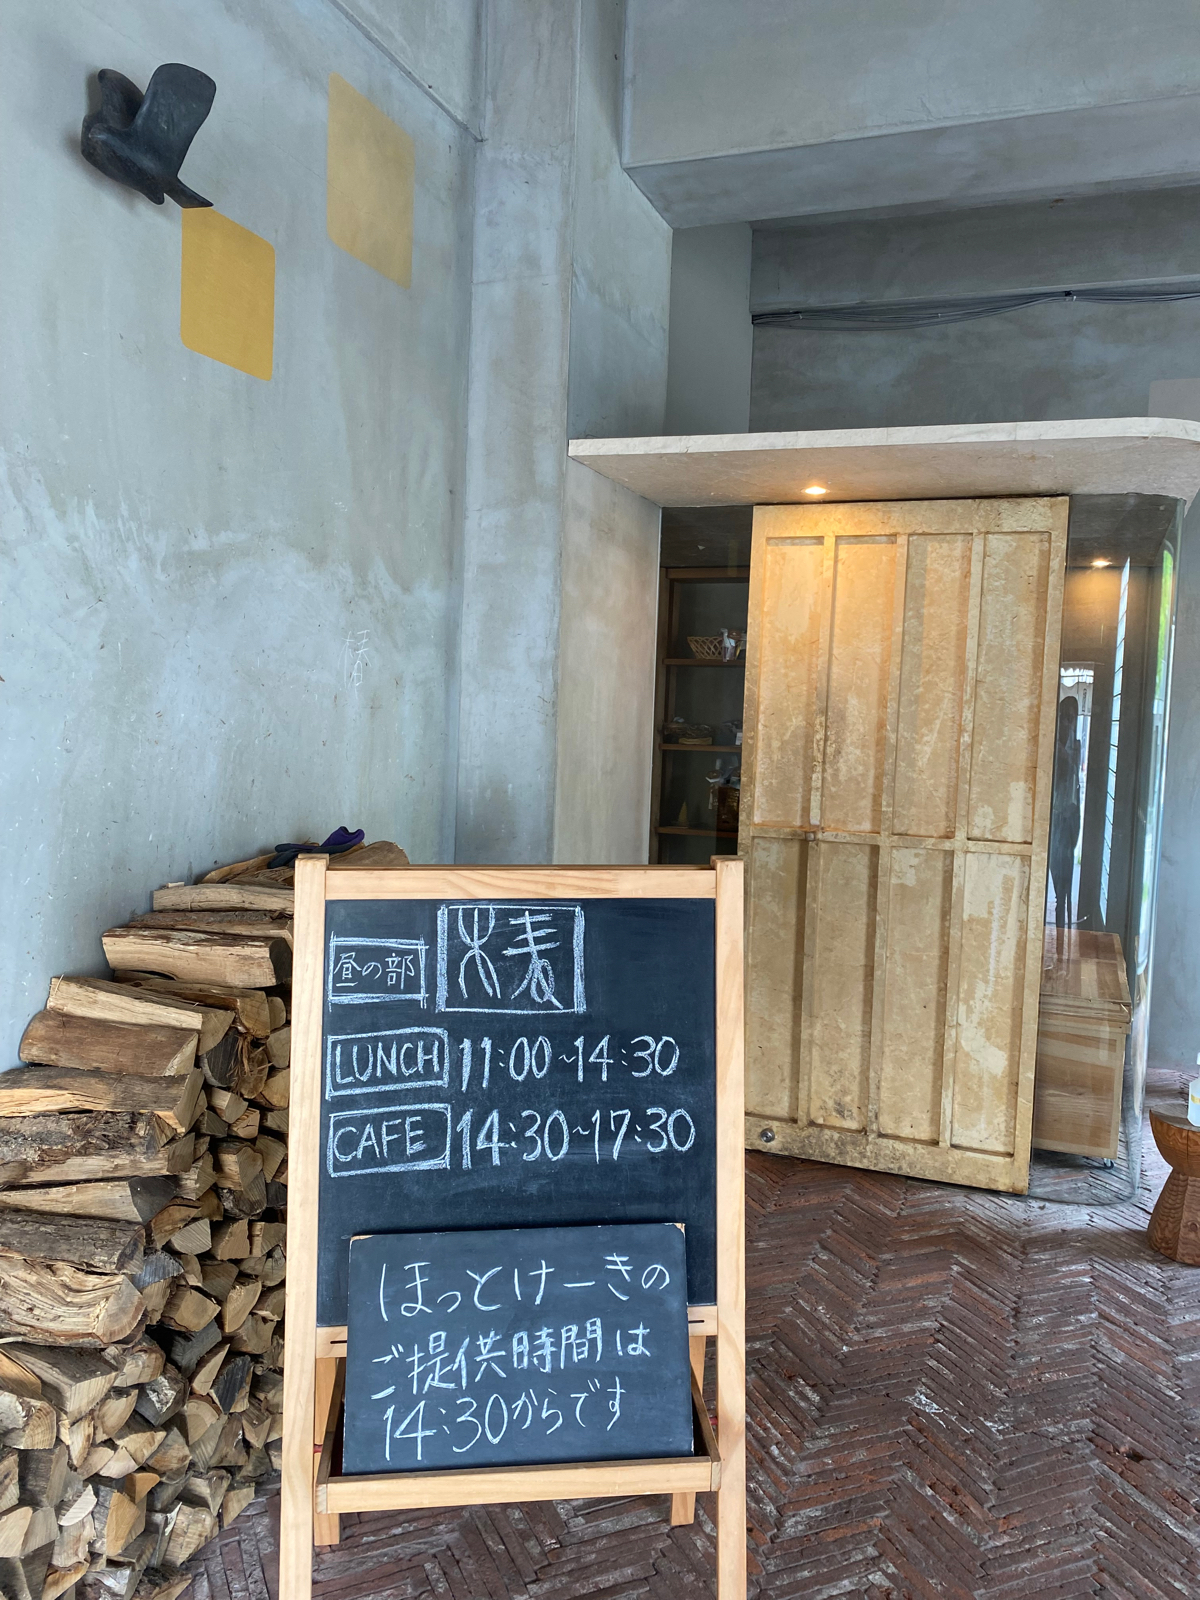 椿
昼の部
LUNCH 11:00~14:30
CAFE 14:30~17:30
ほっとけーきの
ご提供時間は
14:30からです